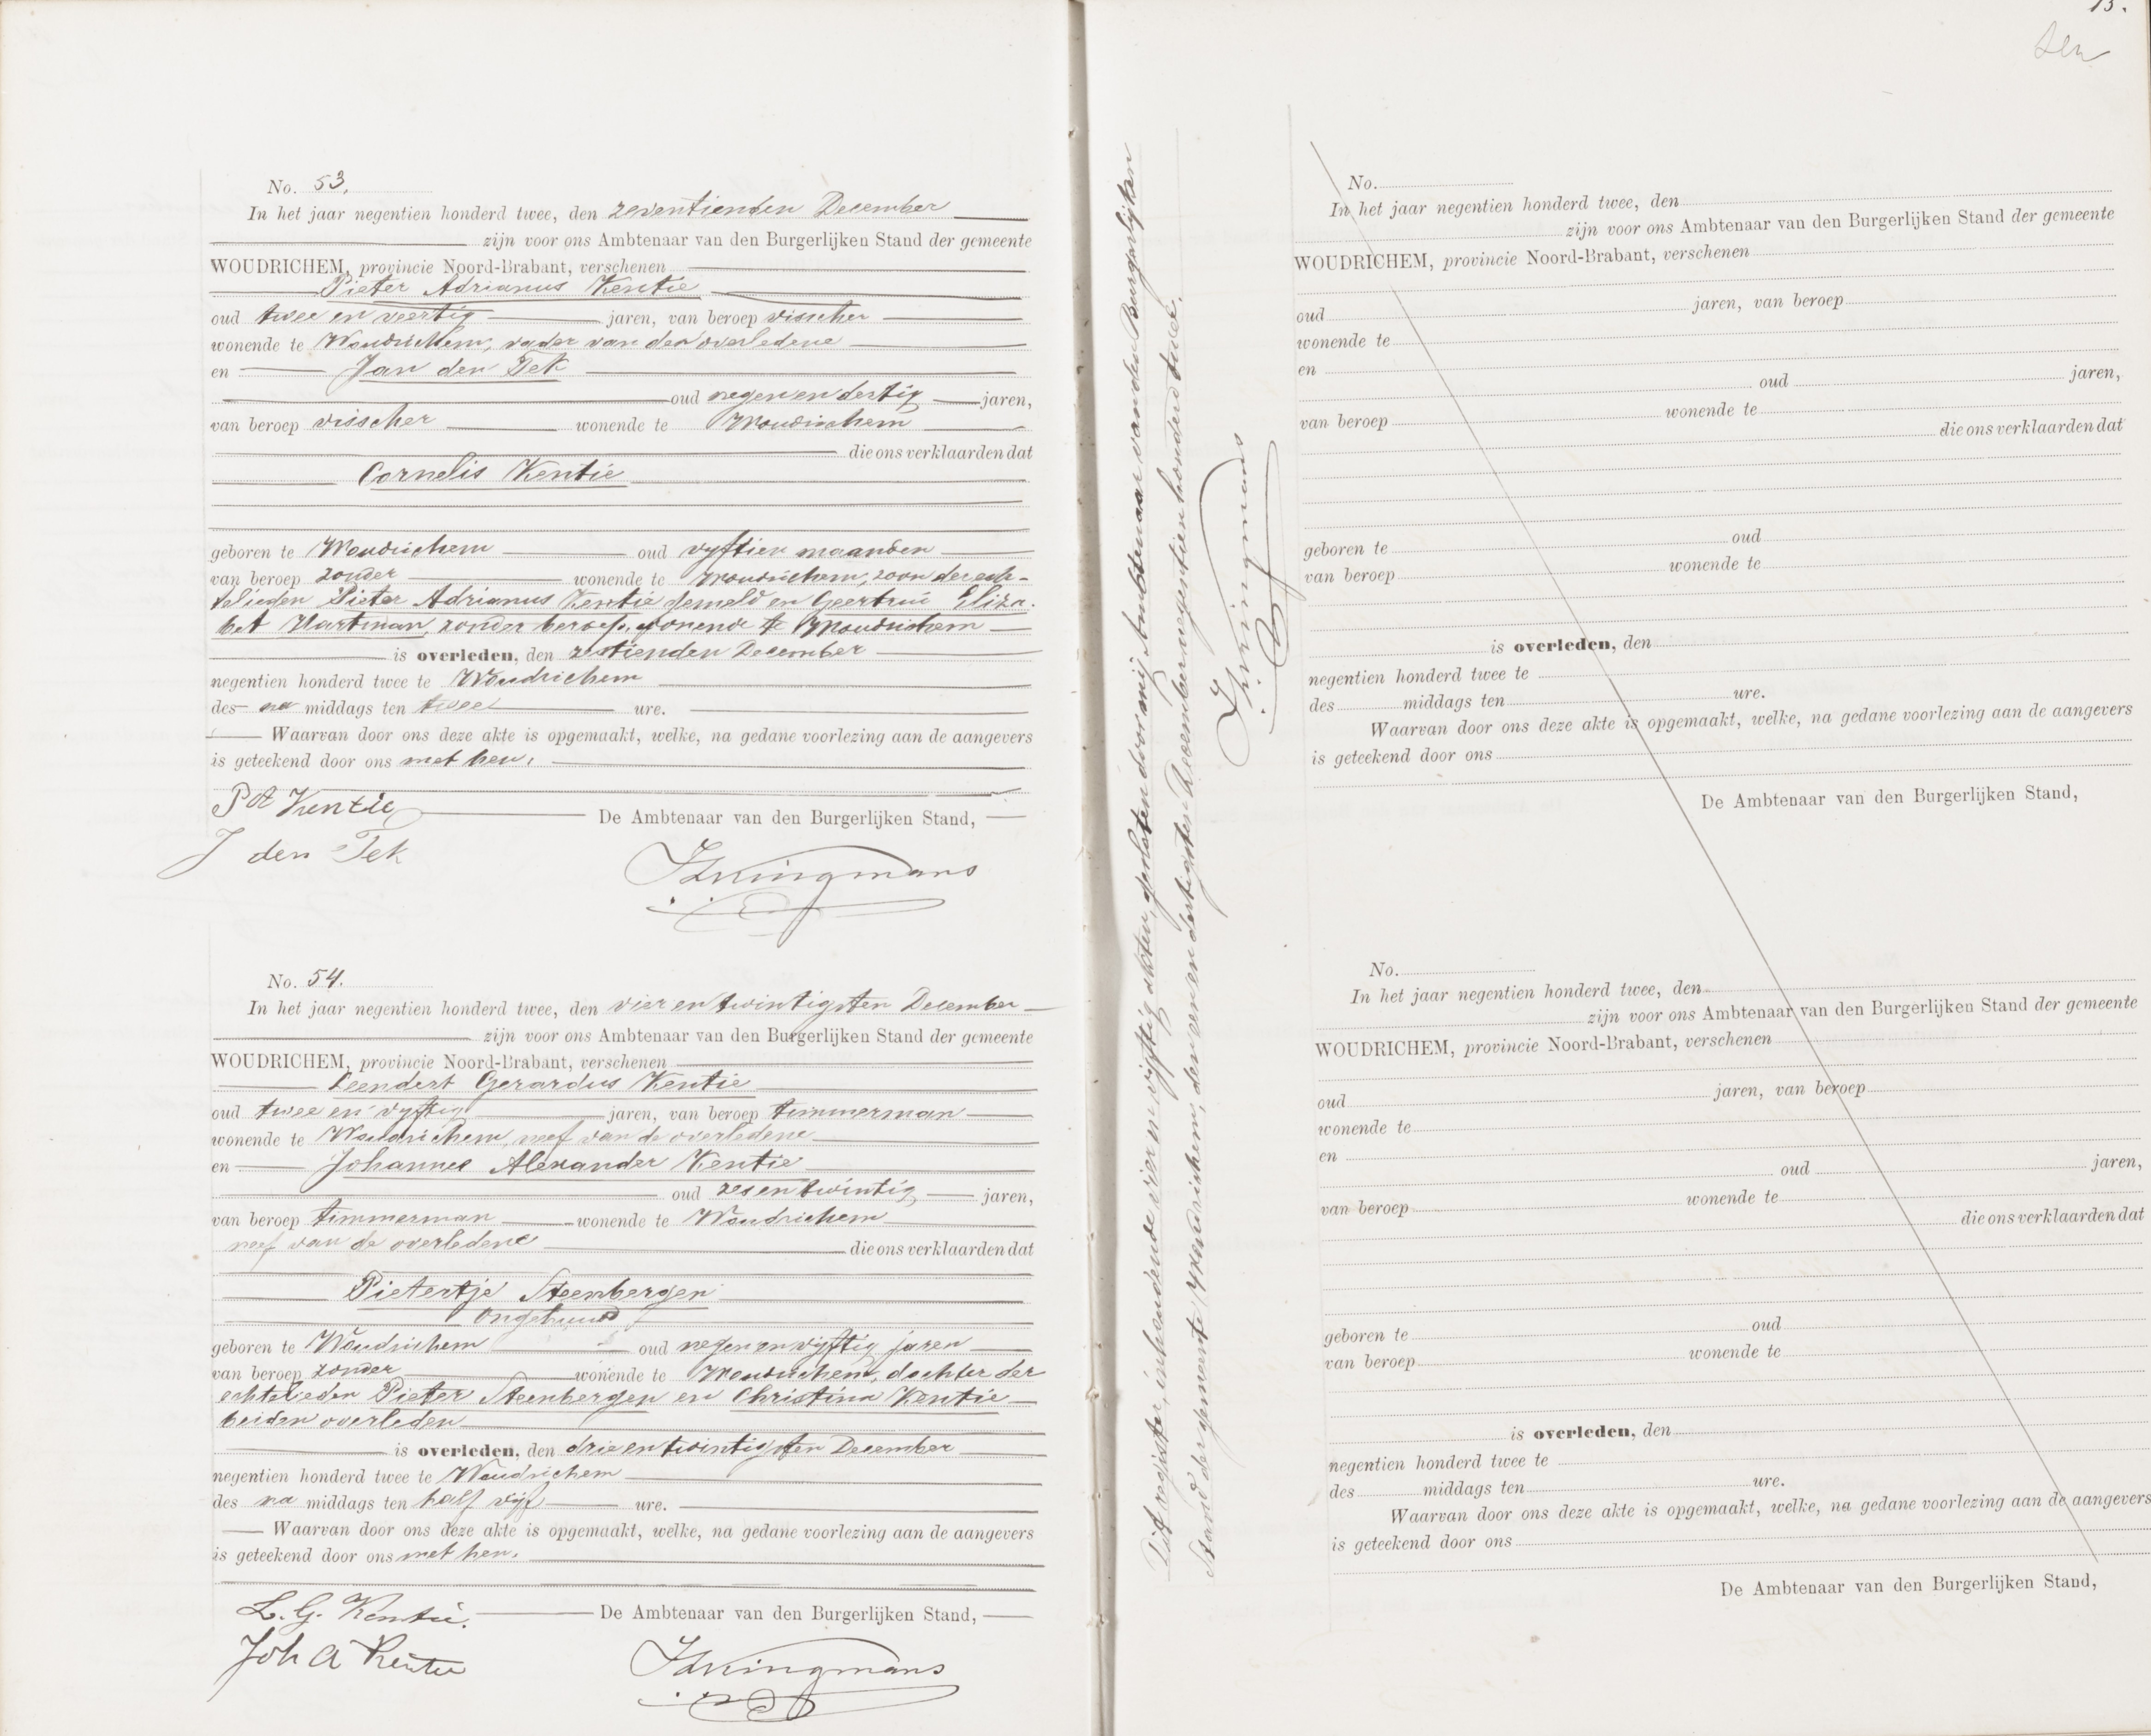 No. 53.
In het jaar negentien honderd twee, den zeventienden December
zijn voor ons Ambtenaar van den Burgerlijken Stand der gemeente
WOUDRICHEM, provincie Noord-Brabant, verschenen
Pieter Adrianus Kentie
oud twee en veertig jaren, van beroep visscher
wonende te Woudrichem, vader van den overledene
en Jan den Tek
oud negen en dertig jaren,
van beroep visscher wonende te Woudrichem
die ons verklaarden dat
Cornelis Kentie
geboren te Woudrichem oud vyftien maanden
van beroep zonder wonende te Woudrichem, zoon der ech-
telieden Pieter Adrianus Kentie gemeld en Geertrui Eliza-
bet Hartman, zonder beroep, wonende te Woudrichem
is overleden, den zestienden December
negentien honderd twee te Woudrichem
des na middags ten twee ure.
Waarvan door ons deze akte is opgemaakt, welke, na gedane voorlezing aan de aangevers
is geteekend door ons met hen.
P A Kentie
De Ambtenaar van den Burgerlijken Stand,
J den Tek
No. 54.
In het jaar negentien honderd twee, den vier en twintigsten December
zijn voor ons Ambtenaar van den Burgerlijken Stand der gemeente
WOUDRICHEM, provincie Noord-Brabant, verschenen
Leendert Gerardus Kentie
oud twee en vyftig jaren, van beroep timmerman
wonende te Woudrichem, neef van de overledene
en Johannes Alexander Kentie
oud zes en twintig jaren,
van beroep timmerman wonende te Woudrichem
neef van de overledene die ons verklaarden dat
Pietertje Steenbergen
Ongehuwd
geboren te Woudrichem oud negen en vyftig jaren
van beroep zonder wonende te Woudrichem, dochter der
echtelieden Pieter Steenbergen en Christina Kentie
beiden overleden
is overleden, den drie en twintigsten December
negentien honderd twee te Woudrichem
des na middags ten half vijf ure.
Waarvan door ons deze akte is opgemaakt, welke, na gedane voorlezing aan de aangevers
is geteekend door ons met hen.
L. G. Kentie.
De Ambtenaar van den Burgerlijken Stand,
Joh A Kentie
Dit register, inhoudende vier en vyftig akten, gesloten door mij Ambtenaar van den Burgerlijken
Stand der gemeente Woudrichem, den een en dertigsten December negentien honderd twee.
No.
In het jaar negentien honderd twee, den
zijn voor ons Ambtenaar van den Burgerlijken Stand der gemeente
WOUDRICHEM, provincie Noord-Brabant, verschenen
oud jaren, van beroep
wonende te
en
oud jaren,
van beroep wonende te
die ons verklaarden dat
geboren te oud
van beroep wonende te
is overleden, den
negentien honderd twee te
des middags ten ure.
Waarvan door ons deze akte is opgemaakt, welke, na gedane voorlezing aan de aangevers
is geteekend door ons
De Ambtenaar van den Burgerlijken Stand,
No.
In het jaar negentien honderd twee, den
zijn voor ons Ambtenaar van den Burgerlijken Stand der gemeente
WOUDRICHEM, provincie Noord-Brabant, verschenen
oud jaren, van beroep
wonende te
en
oud jaren,
van beroep wonende te
die ons verklaarden dat
geboren te oud
van beroep wonende te
is overleden, den
negentien honderd twee te
des middags ten ure.
Waarvan door ons deze akte is opgemaakt, welke, na gedane voorlezing aan de aangevers
is geteekend door ons
De Ambtenaar van den Burgerlijken Stand,